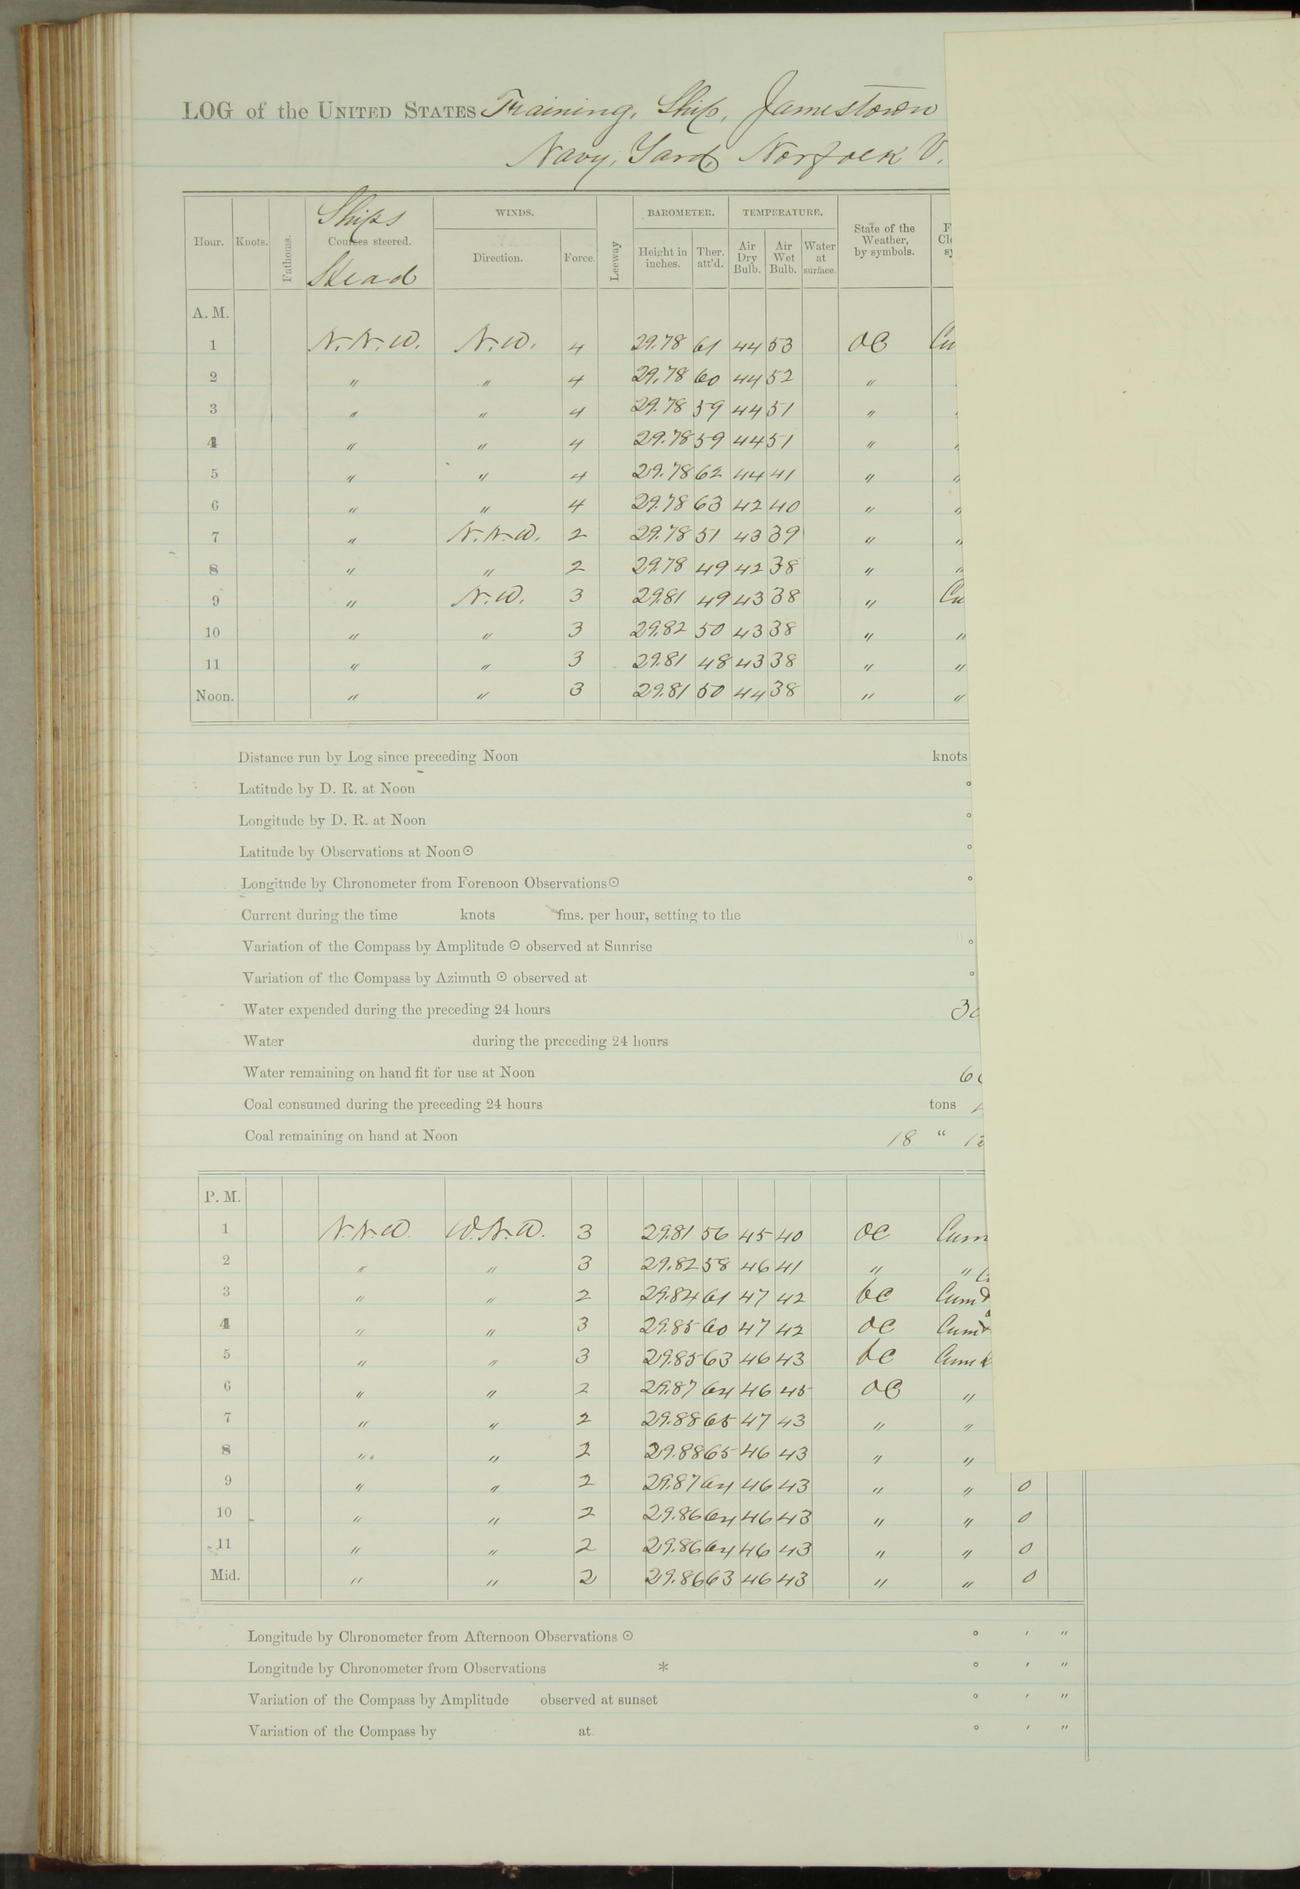 LOG of the UNITED STATES Training, Ship, Jamestown
Navy, Yard, Norfolk V.
Ships
Head
Hour. Knots. Fathoms. Courses steered. WINDS. Direction. Force. Leeway BAROMETER. Height in inches. Ther. att'd. TEMPERATURE. Air Dry Bulb. Air Wet Bulb. Water at surface. State of the Weather, by symbols.
A. M.
1 N.N.W. N.W. 4 29.78 61 44 53 OC Cu
2 " " 4 29.78 60 44 52 "
3 " " 4 29.78 59 44 51 "
4 " " 4 29.78 59 44 51 " "
5 " " 4 29.78 62 44 41 " "
6 " " 4 29.78 63 42 40 " "
7 " N.N.W. 2 29.78 51 43 39 " "
8 " " 2 29.78 49 42 38 " "
9 " N.W. 3 29.81 49 43 38 " Cu
10 " " 3 29.82 50 43 38 " "
11 " " 3 29.81 48 43 38 " "
Noon. " " 3 29.81 50 44 38 " "
Distance run by Log since preceding Noon knots
Latitude by D. R. at Noon °
Longitude by D. R. at Noon °
Latitude by Observations at Noon ☉ °
Longitude by Chronometer from Forenoon Observations ☉ °
Current during the time knots fms. per hour, setting to the
Variation of the Compass by Amplitude ☉ observed at Sunrise °
Variation of the Compass by Azimuth ☉ observed at °
Water expended during the preceding 24 hours 30
Water during the preceding 24 hours
Water remaining on hand fit for use at Noon 6
Coal consumed during the preceding 24 hours tons
Coal remaining on hand at Noon 18 " 12
P. M.
1 N.N.W. W.N.W. 3 29.81 56 45 40 OC Cum
2 " " 3 29.82 58 46 41 " "
3 " " 2 29.84 61 47 42 bC Cum &
4 " " 3 29.85 60 47 42 OC Cum &
5 " " 3 29.85 63 46 43 bC Cum &
6 " " 2 29.87 64 46 45 OC "
7 " " 2 29.88 65 47 43 " "
8 " " 2 29.88 65 46 43 " "
9 " " 2 29.87 64 46 43 " " 0
10 " " 2 29.86 64 46 43 " " 0
11 " " 2 29.86 64 46 43 " " 0
Mid. " " 2 29.86 63 46 43 " " 0
Longitude by Chronometer from Afternoon Observations ☉ ° ′ ″
Longitude by Chronometer from Observations * ° ′ ″
Variation of the Compass by Amplitude observed at sunset ° ′ ″
Variation of the Compass by at ° ′ ″